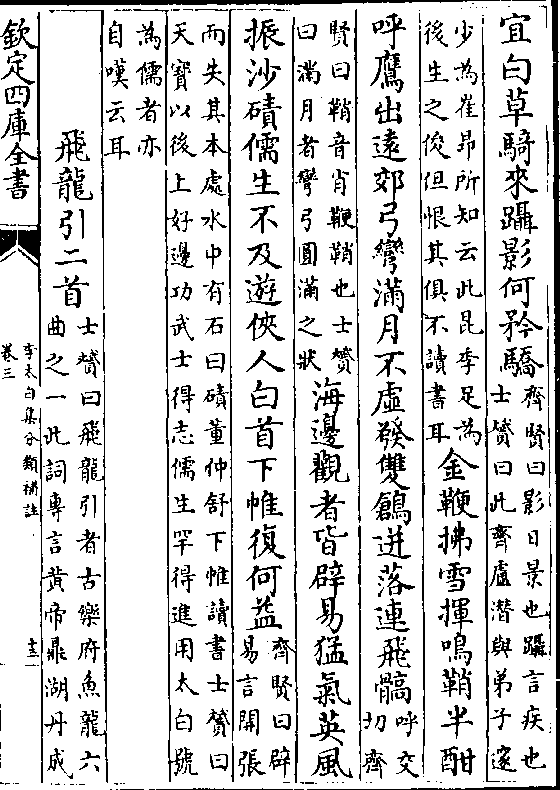 宜白草騎來躡影何矜驕齊賢曰影日景也躡言疾也士贇曰此齊盧潛與弟子邃
少為崔昻所知云此昆季足為後生之俊但恨其俱不讀書耳金鞭拂雪揮鳴鞘半酣
呼鷹出遠郊弓彎滿月不虛發雙鶬迸落連飛髇呼交切齊
賢曰鞘音肖鞭鞘也士贇曰滿月者彎弓圓滿之狀海邊觀者皆辟易猛氣英風
振沙磧儒生不及遊俠人白首下帷復何益齊賢曰辟易言開張
而失其本處水中有石曰磧董仲舒下帷讀書士贇曰天寶以後上好邊功武士得志儒生罕得進用太白號
為儒者亦自嘆云耳
飛龍引二首士贇曰飛龍引者古樂府魚龍六曲之一此詞專言黄帝鼎湖丹成
欽定四庫全書
李太白集分類補註
卷三
十三